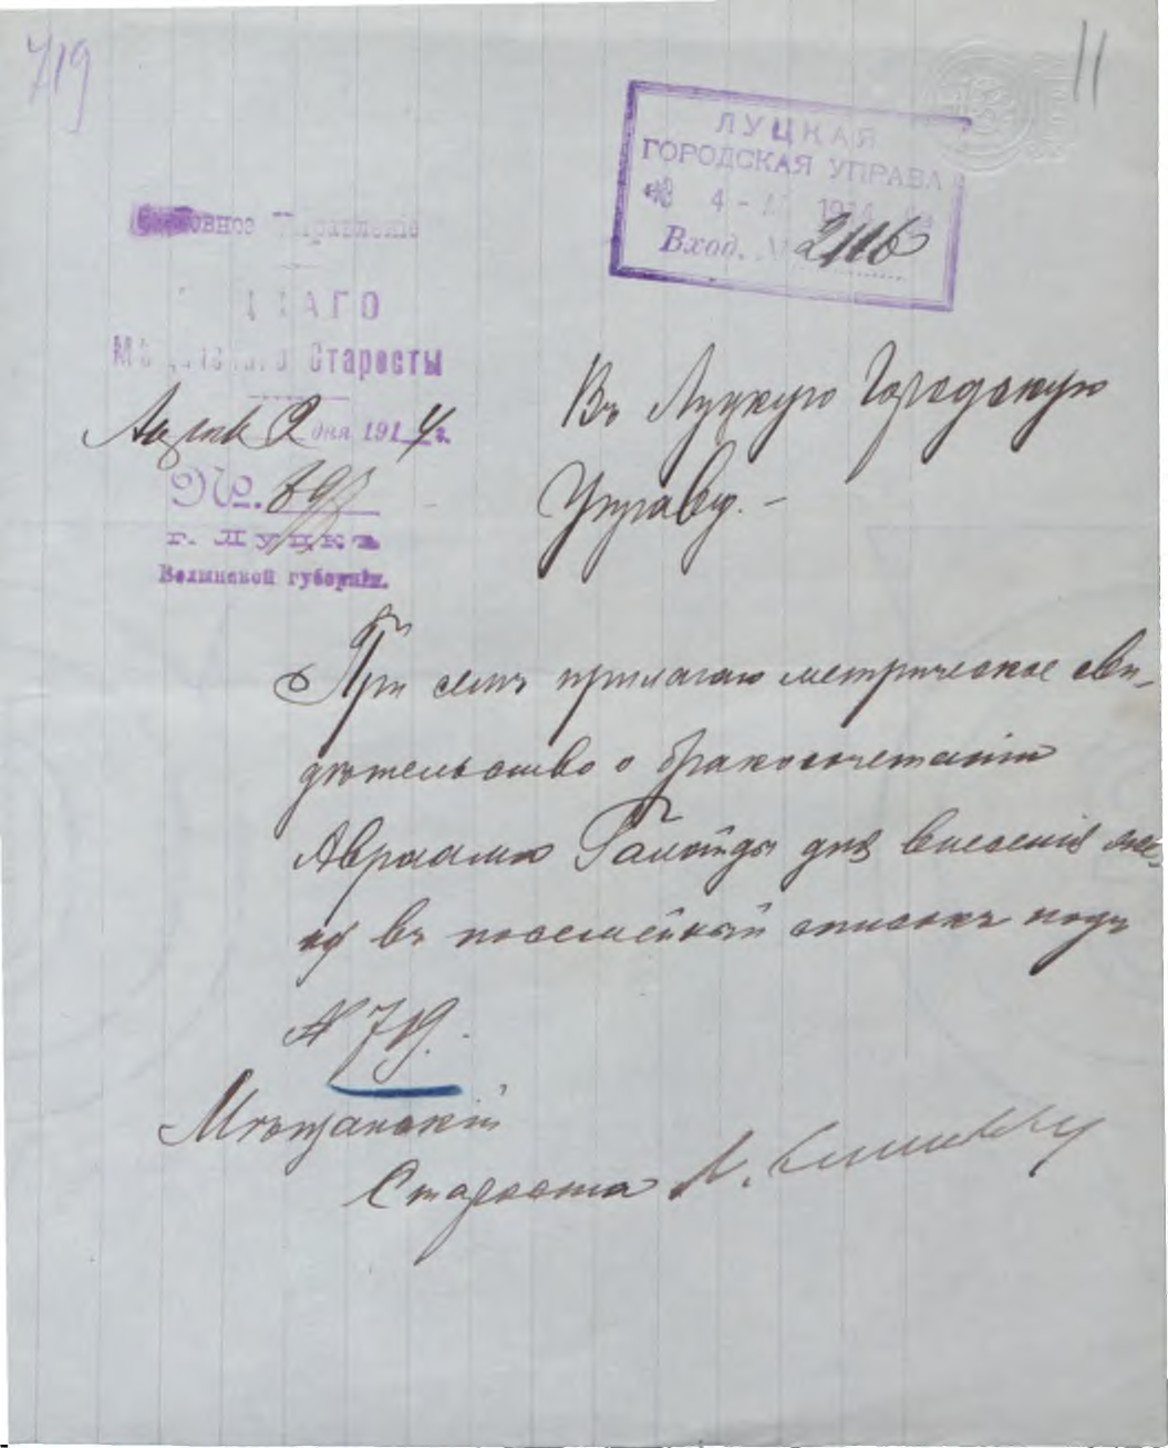 719
11
ЛУЦКАЯ
ГОРОДСКАЯ УПРАВА
4 - 1914
Вход. № 2116
Сословное Управленіе
Старосты
2 дня 1914 г.
№.
г. ЛУЦКЪ
Волынской губерніи.
Въ Луцкую Городскую
Управу. -
При семъ прилагаю метрическое сви-
дѣтельство о бракосочетаніи
Авраама для внесенія
въ посемейный списокъ подъ
№ 719.
Мѣщанскій
Староста